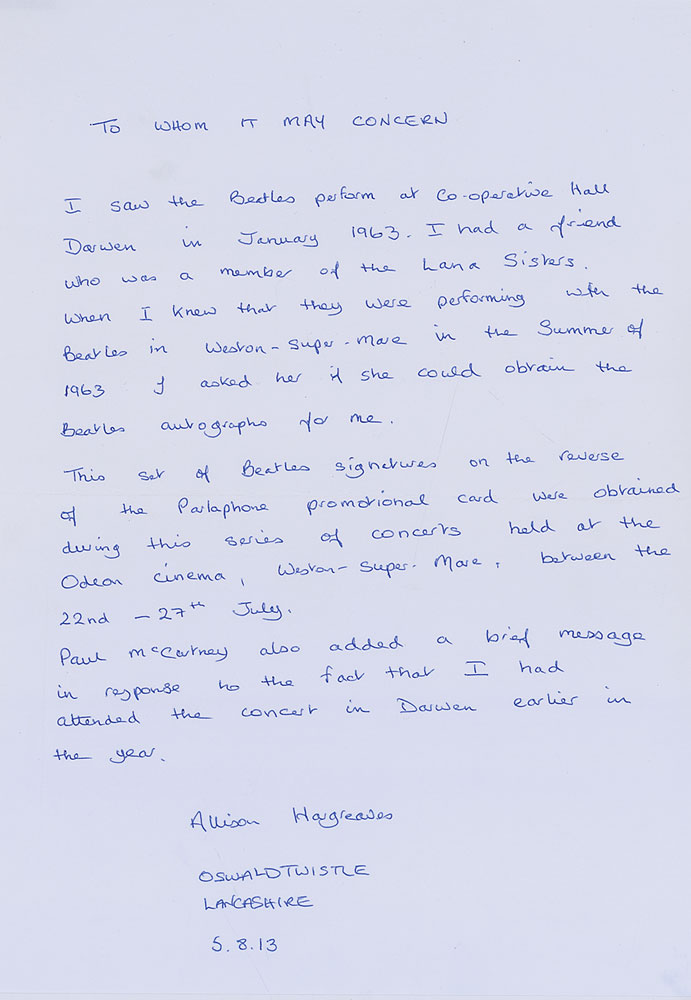 TO WHOM IT MAY CONCERN
I saw the Beatles perform at Co-operative Hall
Darwen in January 1963. I had a friend
who was a member of the Lana Sisters.
When I knew that they were performing with the
Beatles in Weston-Super-Mare in the Summer of
1963 I asked her if she could obtain the
Beatles autographs for me.
This set of Beatles signatures on the reverse
of the Parlaphone promotional card were obtained
during this series of concerts held at the
Odeon cinema, Weston-Super-Mare, between the
22nd - 27th July.
Paul McCartney also added a brief message
in response to the fact that I had
attended the concert in Darwen earlier in
the year.
Allison Hargreaves
OSWALDTWISTLE
LANCASHIRE
5.8.13